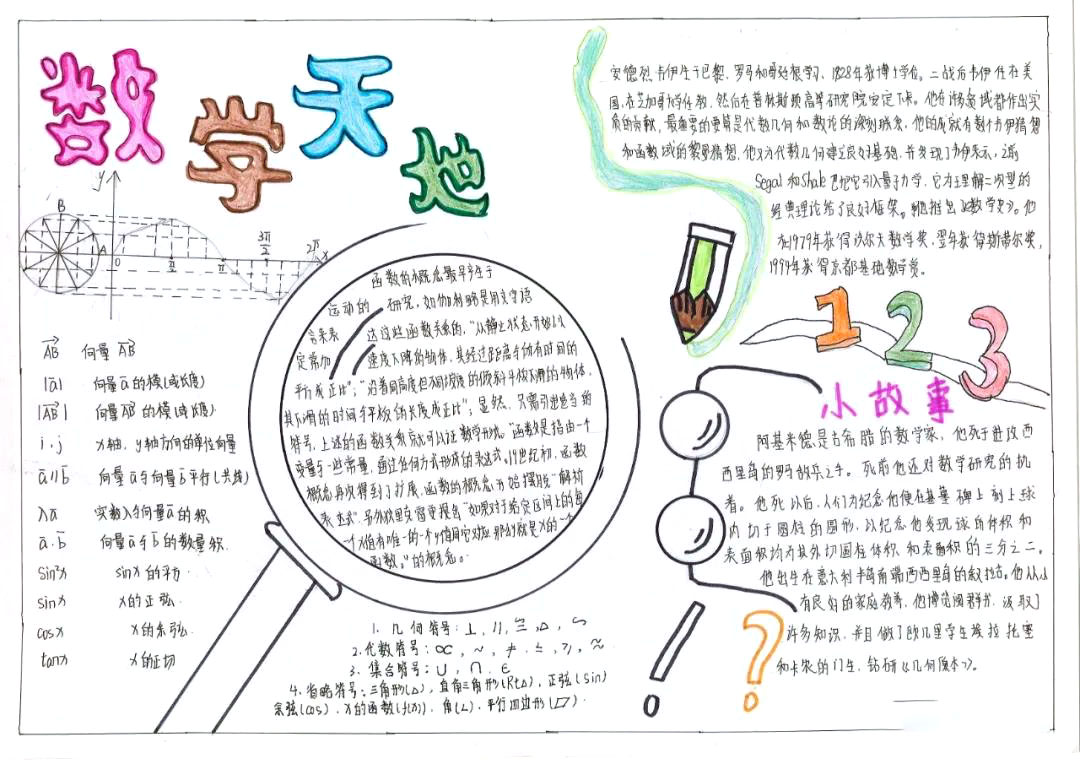 数学天地
y
B
A
0
π/2
π
3π/2
2π
x
AB 向量 AB
|a| 向量a的模(或长度)
|AB| 向量AB的模(或长度)
i.j x轴, y轴方向的单位向量
a//b 向量a与向量b平行(共线)
λa 实数λ与向量a的积
a.b 向量a与b的数量积.
Sin²x sinx的平方
sinx x的正弦.
cosx x的余弦.
tanx x的正切
函数的概念最早产生于
运动的 研究, 如伽利略是用文字语
言来表 达这些函数关系的, "从静止状态开始以
定常加 速度下降的物体, 其经过距离与所有时间的
平方成正比"; "沿着同高度但不同坡度的倾斜平板下滑的物体,
其下滑的时间与平板的长度成正比"; 显然, 只需引出适当的
符号, 上述的函数关系就可以证数学形式. "函数是指由一个
变量与一些常量, 通过任何方式形成的表达式, 19世纪初, 函数
概念再次得到了扩展, 函数的概念开始摆脱"解析
表达式". 另外欧里又需要提出"如果对于给定区间上的每
一个x值有唯一的一个y值同它对应那么y就是x的一个
函数。"的概念。
1. 几何符号: ⊥, //, ≌, △, ∽
2. 代数符号: ∝, ~, ≠, ≤, ≥, ≈
3. 集合符号: ∪, ∩, ∈
4. 省略符号: 三角形(△), 直角三角形(Rt△), 正弦(sin)
余弦(cos), x的函数(f(x)), 角(∠), 平行四边形(▱)
安德烈韦伊生于巴黎, 罗马和哥廷根学习, 1928年获博士学位。二战后韦伊住在美
国, 在芝加哥大学任教, 然后在普林斯顿高等研究院安定下来。他在许多领域都作出实
质的贡献, 最重要的要算是代数几何和数论的深刻联系, 他的成就有数个韦伊猜想
和函数域的黎曼猜想. 他又为代数几何建立良好基础, 并发现了韦伊表示, 之前
Segal 和Shale 已把它引入量子力学, 它为理解二次型的
经典理论给了良好框架。他推出《数学史》。他
在1979年获得沃尔夫数学奖, 翌年获得斯蒂尔奖,
1994年获得京都基础数学赏。
1 2 3
小故事
阿基米德是古希腊的数学家, 他死于进攻西
西里岛的罗马敌兵之手。死前他还对数学研究的执
着。他死以后, 人们为纪念他便在其墓碑上刻上球
内切于圆柱的图形, 以纪念他发现球的体积和
表面积均为其外切圆柱体积和表面积的三分之二。
他出生在意大利半岛南端西西里岛的叙拉古。他从小
有良好的家庭教养, 他博览阅群书. 汲取了
许多知识, 并且做了欧几里学生埃拉托塞
和卡农的门生, 钻研《几何原本》。